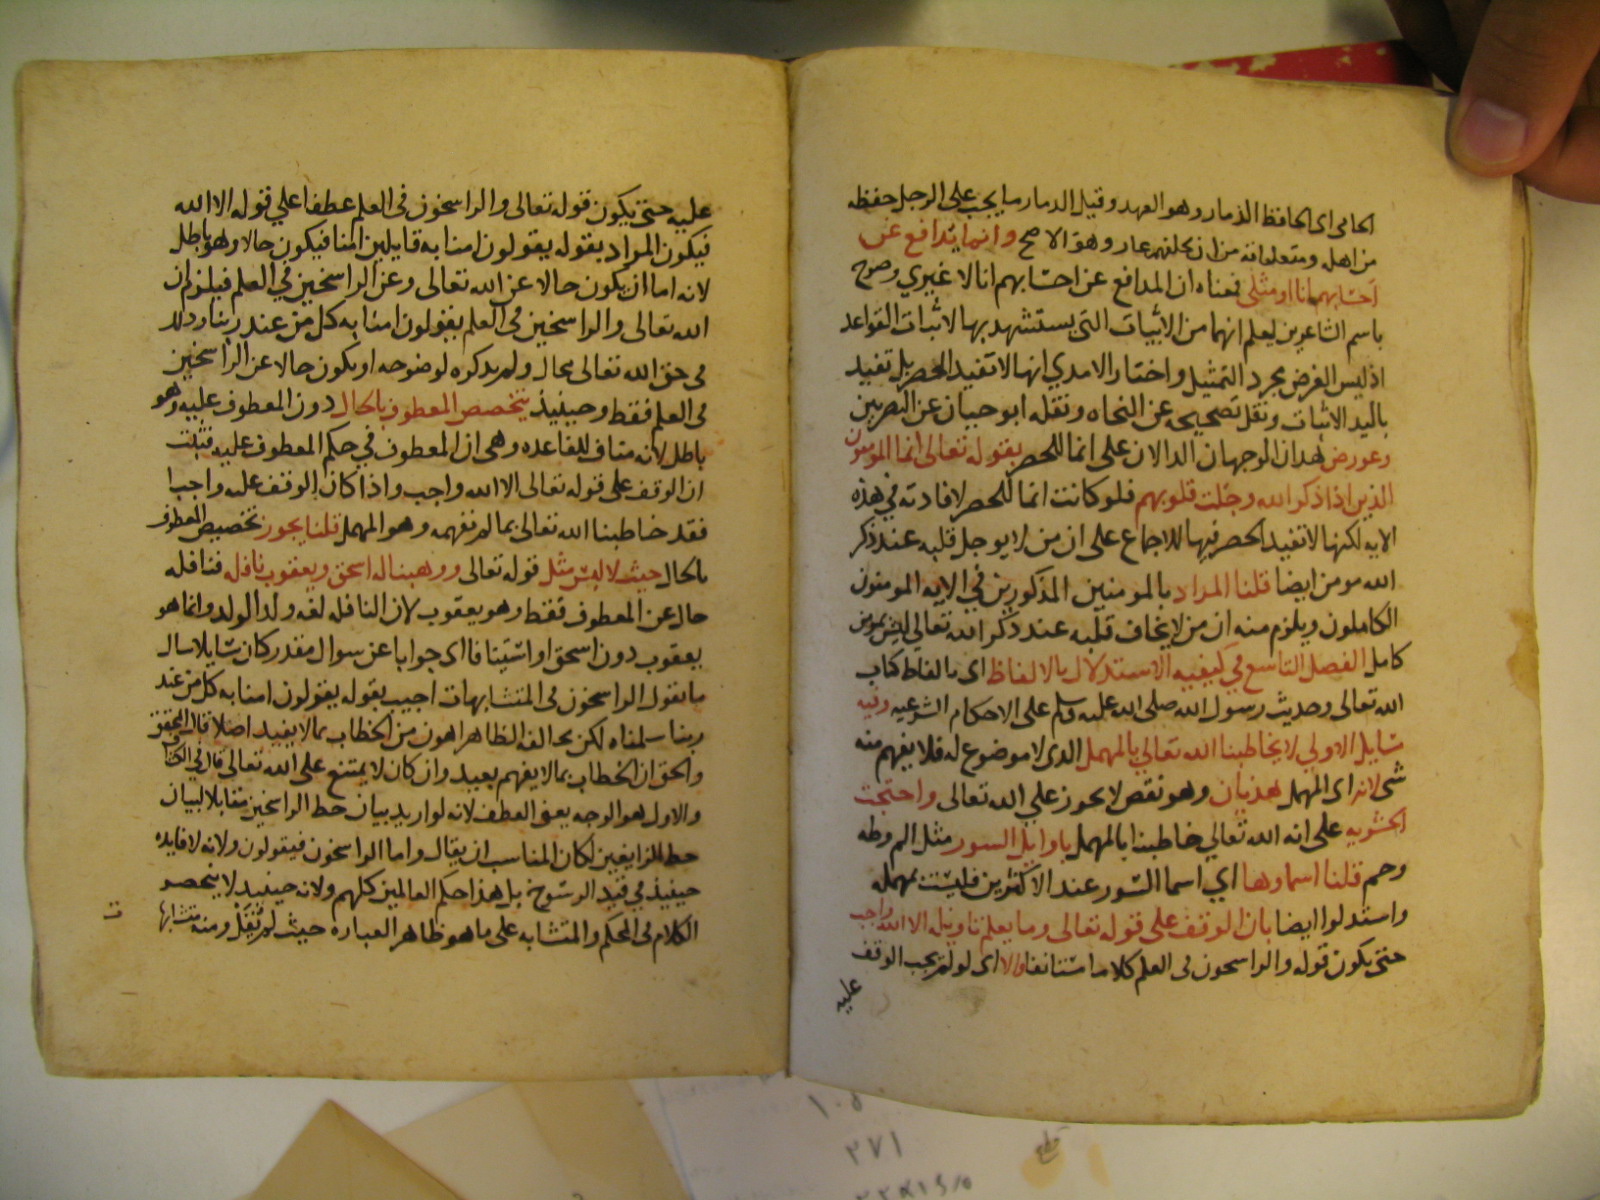 الحامى اى الحافظ الذمار وهو العهد وقيل الدمار ما يجب على الرجل حفظه
من اهله ومتعلقاته من ان يلحقهم عار وهو الاصح وانما يدافع عن
احسابهم انا او مثلى فمعناه ان المدافع عن احسابهم انا لا غيري وصرح
باسم الشاعرين ليعلم انهما من الابيات التى يستشهد بها لاثبات القواعد
اذ ليس الغرض مجرد التمثيل واختار الامدي انها لا تفيد الحصر بل تفيد
تاكيد الاثبات ونقل تصحيحه عن النحاه ونقله ابو حيان عن البصريين
وعورض هدان الوجهان الدالان على انما للحصر بقوله تعالى انما المومنون
الذين اذا ذكر الله وجلت قلوبهم فلو كانت انما للحصر لافادته فى هذه
الايه لكنها لا تفيد الحصر فيها للاجماع على ان من لا يوجل قلبه عند ذكر
الله مومن ايضا قلنا المراد بالمومنين المذكورين في الايه المومنون
الكاملون ويلزم منه ان من لا يخاف قلبه عند ذكر الله تعالي ليس بمومن
كامل الفصل التاسع في كيفيه الاستدلال بالالفاظ اى بالفاظ كتاب
الله تعالى وحديث رسول الله صلى الله عليه وسلم على الاحكام الشرعيه وفيه
مسايل الاولي لا يخاطبنا الله تعالي بالمهمل الدى لا موضوع له فلا يفهم منه
شى لانه اى المهمل هذيان وهو نقص لا يجوز علي الله تعالى واحتجت
الحشويه على انه الله تعالي خاطبنا بالمهمل باوايل السور مثل الم وطه
وحم قلنا اسماوها اي اسما السور عند الاكثرين فليست بمهمله
واستدلوا ايضا بان الوقف على قوله تعالى وما يعلم تاويله الا الله واجب
حتى يكون قوله والراسخون فى العلم كلاما مستانفا والا اى لو لم يجب الوقف
عليه
عليه حتى يكون قوله تعالى والراسخون فى العلم عطفا علي قوله الا الله
فيكون المراد بقوله يقولون امنا به قايلين امنا فيكون حالا وهو باطل
لانه اما ان يكون حالا عن الله تعالى وعن الراسخين في العلم فيلزم ان
الله تعالى والراسخين فى العلم يقولون امنا به كل من عند ربنا وذلك
فى حق الله تعالى محال ولم يدكره لوضوحه او يكون حالا عن الراسخين
فى العلم فقط وحينيذ يتخصص المعطوف بالحال دون المعطوف عليه وهو
باطل لانه مناف للقاعده وهى ان المعطوف في حكم المعطوف عليه فثبت
ان الوقف على قوله تعالى الا الله واجب واذا كان الوقف عليه واجبا
فقد خاطبنا الله تعالى بما لم نفهمه وهو المهمل قلنا يجوز تخصيص المعطوف
بالحال حيث لا لبس مثل قوله تعالى ووهبنا له اسحق ويعقوب نافله فنافله
حال عن المعطوف فقط وهو يعقوب لان النافله لغه ولد الولد وانما هو
يعقوب دون اسحق او استينافا اى جوابا عن سوال مقدر كان سايلا سال
ما يقول الراسخون فى المتشابهات اجيب بقوله يقولون امنا به كل من عند
ربنا سلمناه لكن مخالفه الظاهر اهون من الخطاب بما لا يفيد اصلا قال المحقق
والحق ان الخطاب بما لا يفهم بعيد وان كان لا يمتنع على الله تعالى قال في
والاول هو الوجه يعنى العطف لانه لو اريد بيان حظ الراسخين مقابلا لبيان
حظ الزايغين لكان المناسب ان يقال واما الراسخون فيقولون ولانه لا فايده
حينيذ في قيد الرسوخ بل هذا حكم العالمين كلهم ولانه حينيذ لا ينحصر
الكلام فى المحكم والمتشابه على ما هو ظاهر العباره حيث لم يقل ومنه متشابها
١٠٥
٢٧١